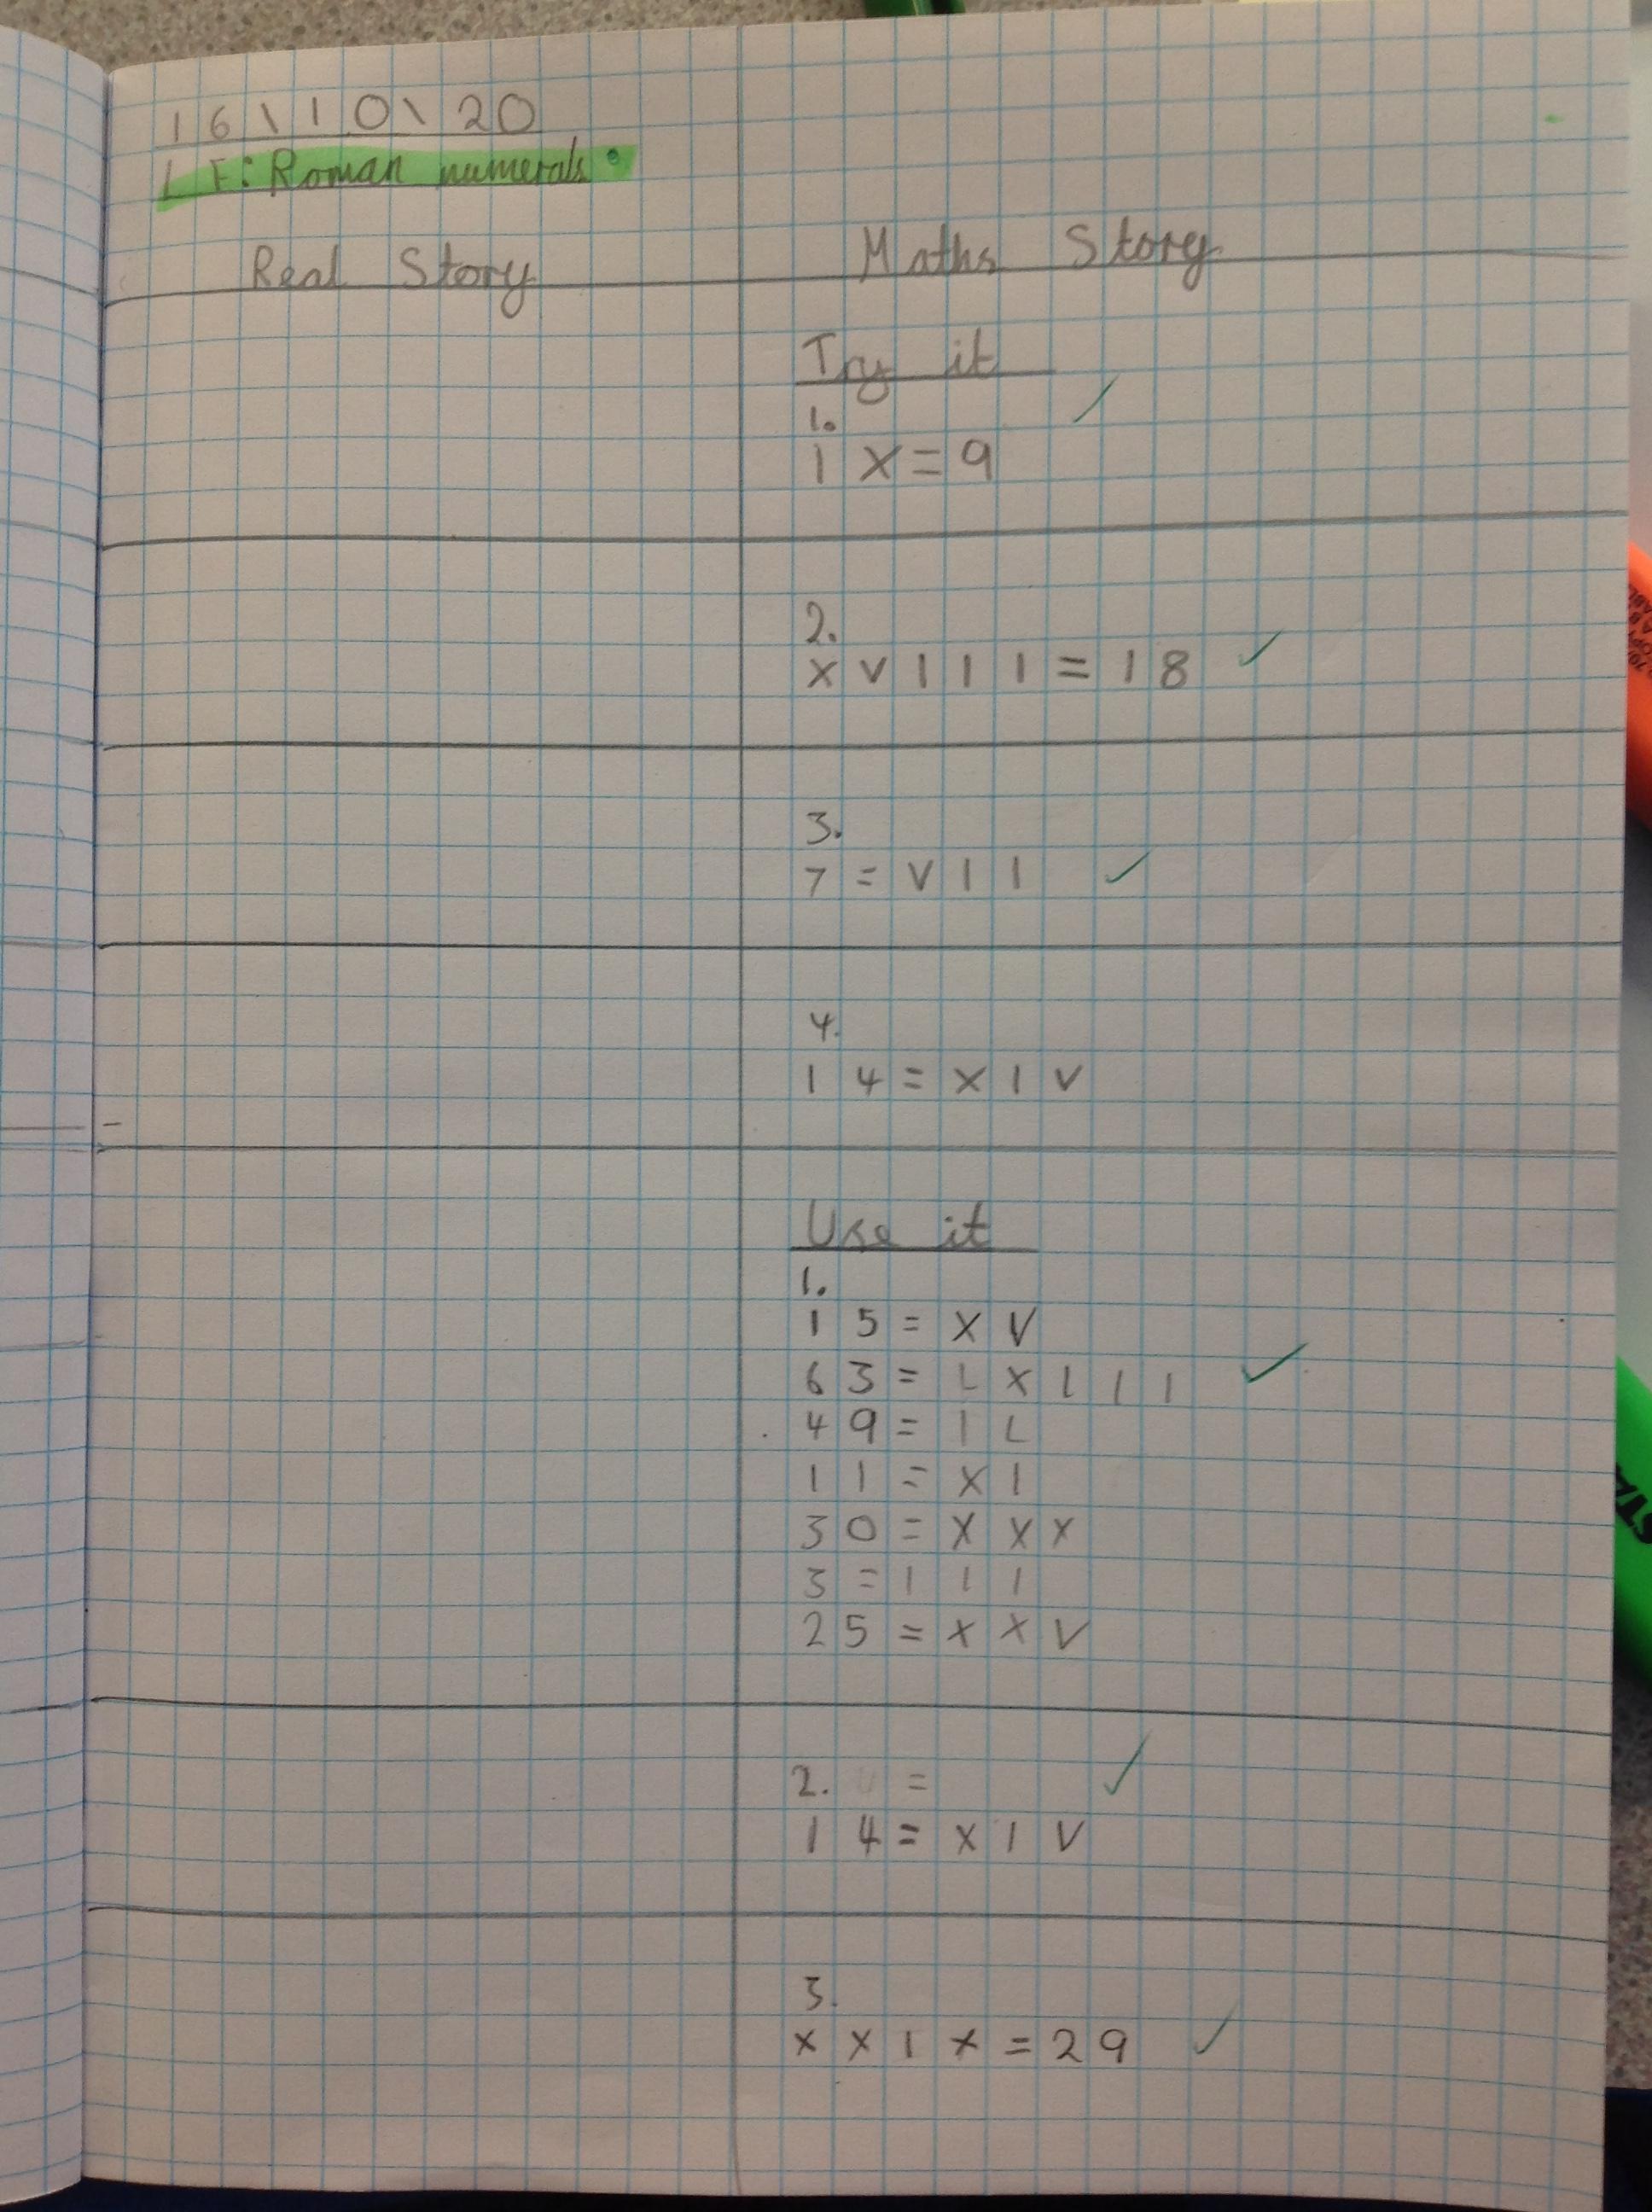 16\10\20
LF: Roman numerals
Real Story
Maths Story
Try it
1.
I X = 9
2.
X V I I I = 18
3.
7 = V I I
4.
14 = X I V
Use it
1.
15 = X V
63 = L X I I I
49 = I L
11 = X I
30 = X X X
3 = I I I
25 = X X V
2. =
14 = X I V
3.
X X I X = 29